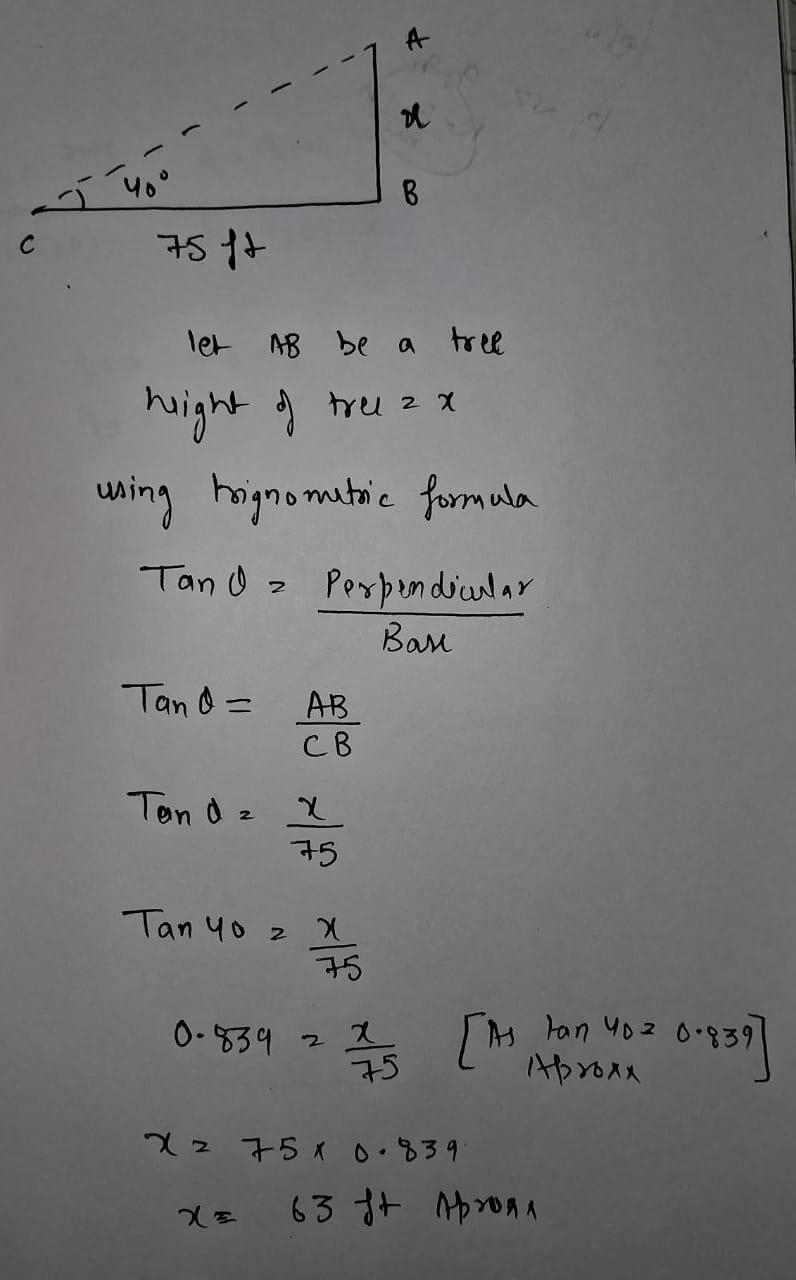 A
x
40°
B
C
75 ft
let AB be a tree
height of tree = x
using trignometric formula
Tan θ = Perpendicular
Base
Tan θ = AB
CB
Tan θ = x
75
Tan 40 = x
75
0.839 = x [As tan 40 = 0.839]
75 Aproxx
x = 75 x 0.839
x = 63 ft Aproxx